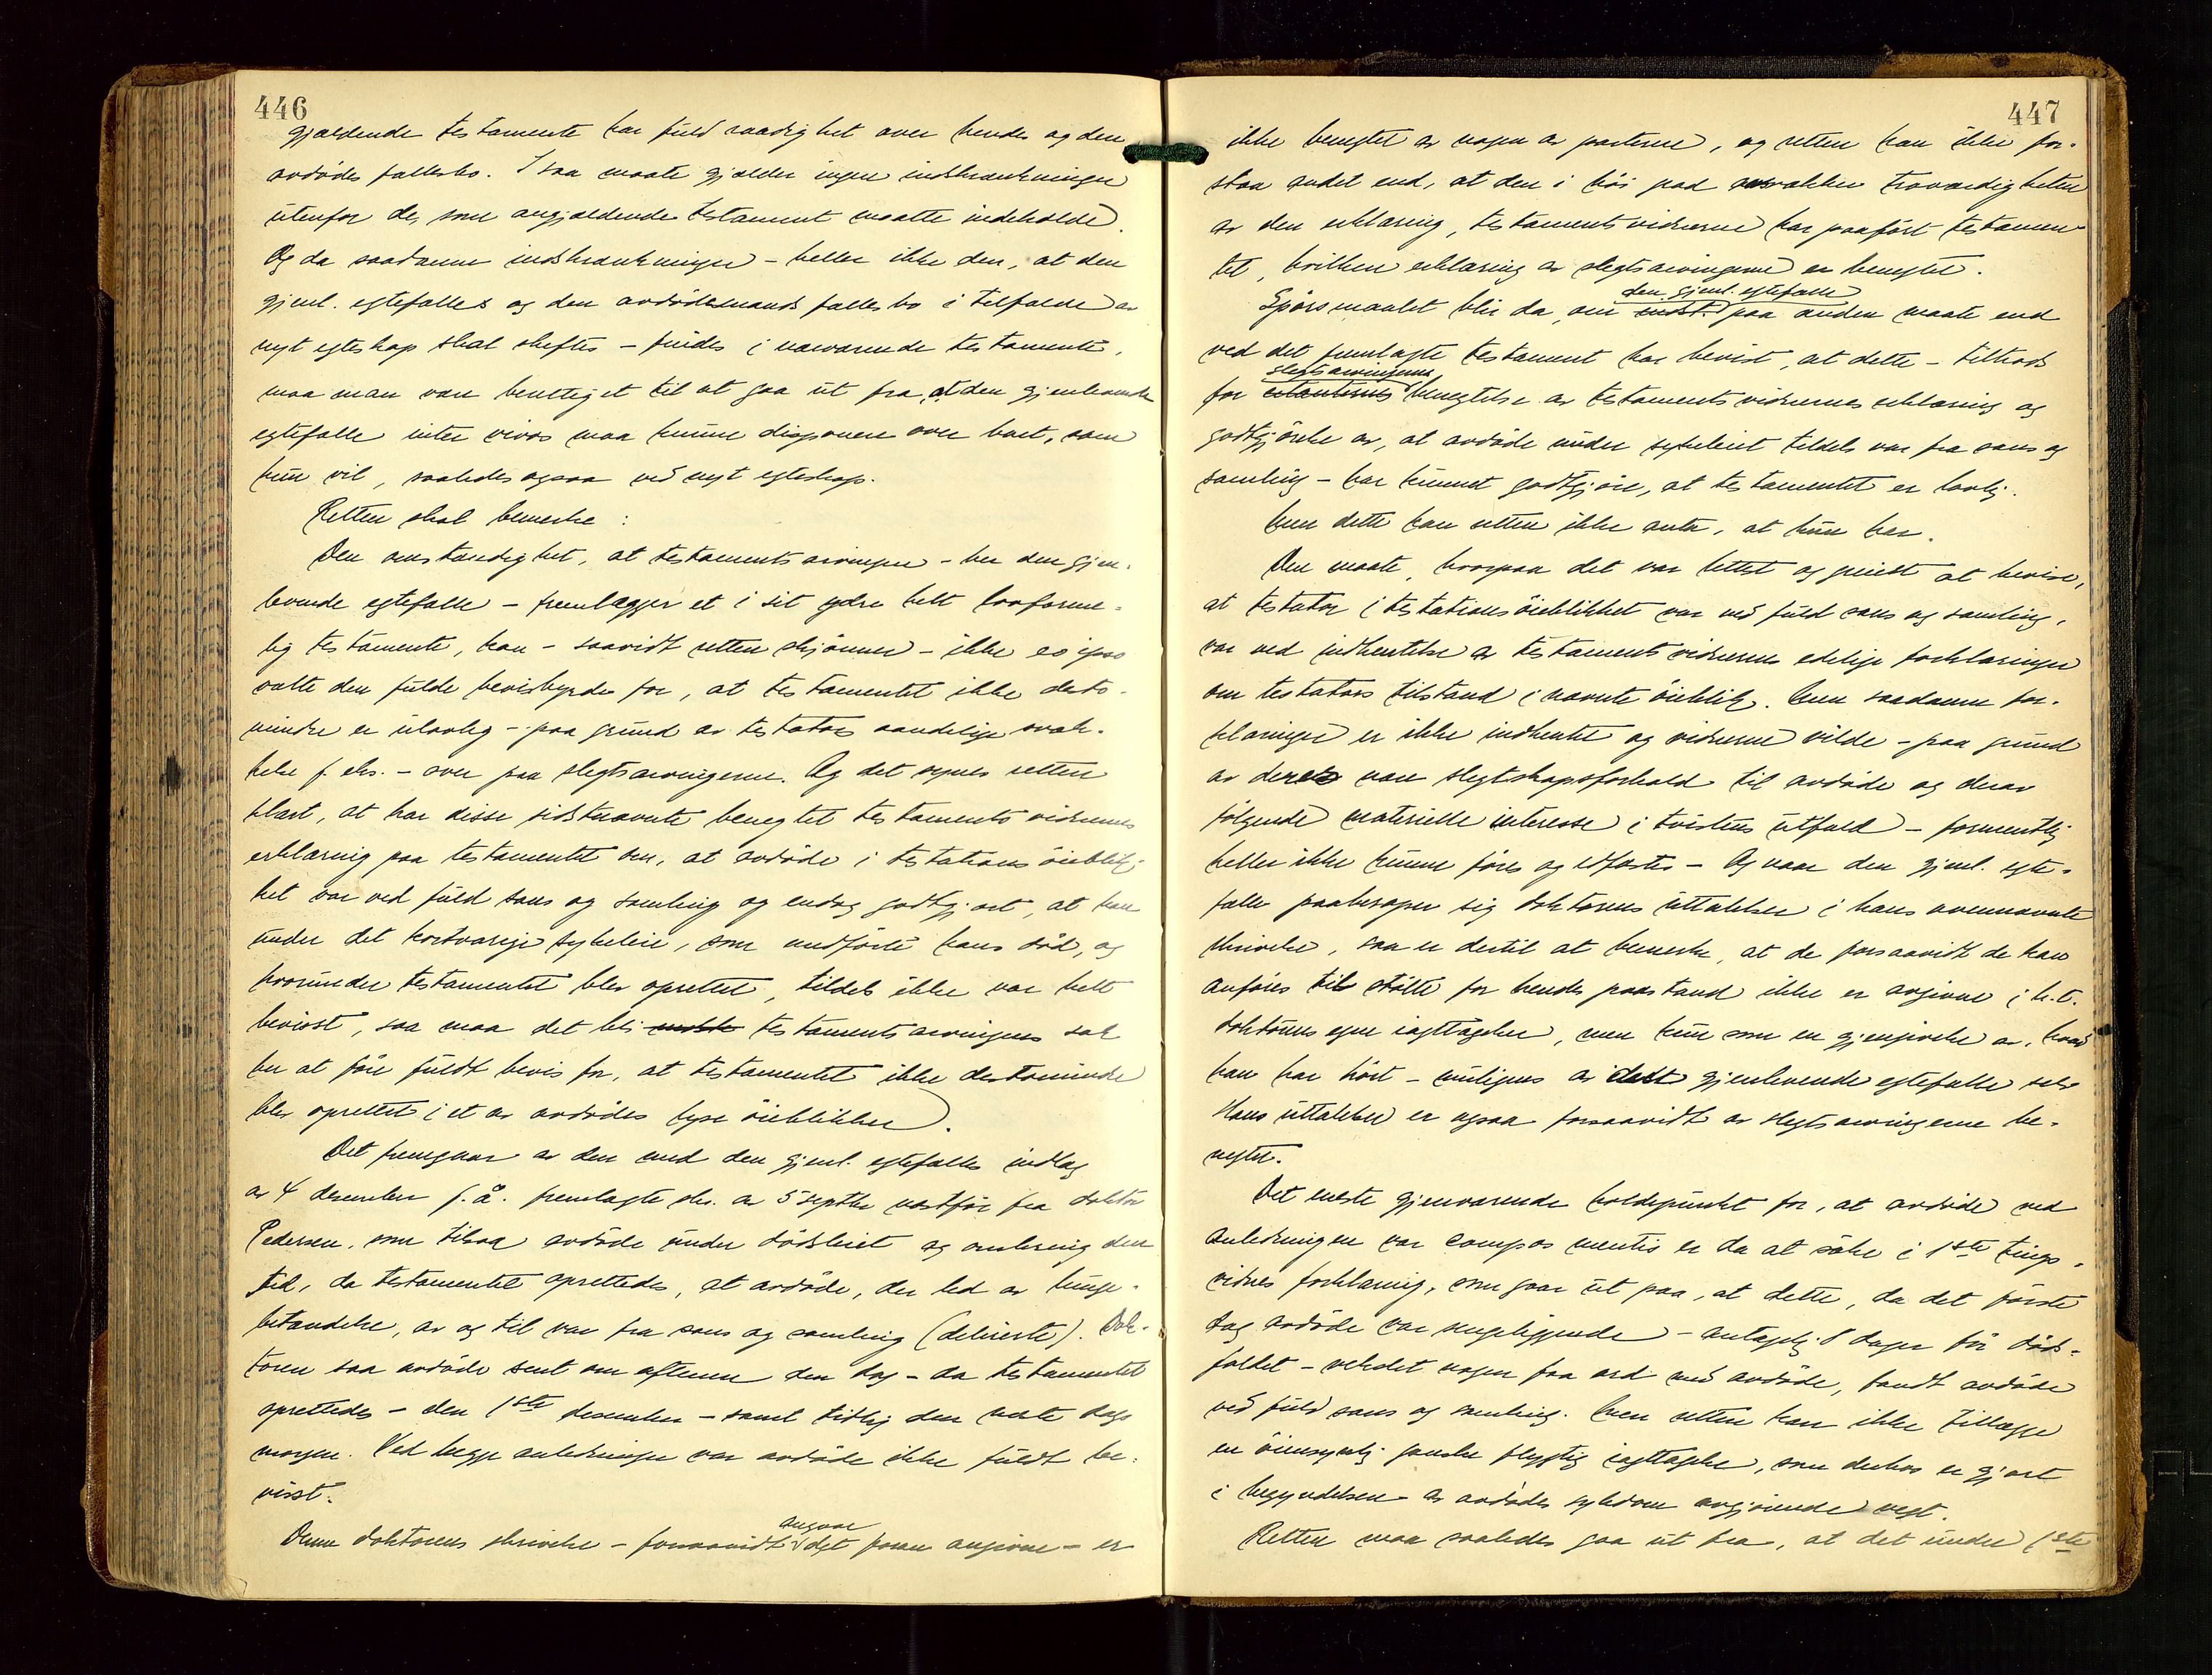 446
gjældende testamente har fuld raadighet over hendes og den
avdødes fællesbo. I saa maate gjælder ingen indskrænkninger
utenfor de, som angjældende testament maatte indeholde.
Og da saadanne indskrænkninger – heller ikke den, at den
gjenl. egtefælles og den avdøde mands fællesbo i tilfælde av
nyt egteskap skal skiftes – findes i nærværende testamente,
maa man være berettiget til at gaa ut fra, at den gjenlevende
egtefælle inter vivos maa kunne disponere over boet, som
hun vil, saaledes ogsaa ved nyt egteskap.
Retten skal bemerke:
Den omstændighet, at testamentsarvingen – her den gjen-
levende egtefælle – fremlægger et i sit ydre helt lovforme-
lig testamente, kan – saavidt retten skjønner – ikke eo ipso
vælte den fulde bevisbyrde for, at testamentet ikke desto-
mindre er ulovlig – paa grund av testators aandelige svæk-
kelse f. eks. – over paa slegtsarvingerne. Og det synes retten
klart, at har disse sidstnævnte benegtet testamentsvidnernes
erklæring paa testamentet om, at avdøde i testationsøieblik-
ket var ved fuld sans og samling og endog godtgjort, at han
under det kortvarige sykeleie, som medførte hans død, og
hvorunder testamentet blev oprettet, tildels ikke var helt
bevisst, saa maa det bli testamentsarvingens sak
her at føre fuldt bevis for, at testamentet ikke destomindre
blev oprettet i et av avdødes lyse øieblikker.
Det fremgaar av den med den gjenl. egtefælles indlæg
av 4 desember f. å. fremlagte skr. av 5 septbr næstfør fra doktor
Pedersen, som tilsaa avdøde under dødsleiet og omkring den
tid, da testamentet oprettedes, at avdøde, der led av lunge-
betændelse, av og til var fra sans og samling (delirerte). Dok-
toren saa avdøde sent om aftenen den dag – da testamentet
oprettedes – den 1ste desember – samt tidlig den næste dags
morgen. Ved begge anledninger var avdøde ikke fuldt be-
visst.
angaar
Denne doktorens skrivelse – forsaavidt det foran angivne – er
447
ikke benegtet av nogen av parterne, og retten kan ikke for-
staa andet end, at den i høi grad avsvækker troværdigheten
av den erklæring, testamentsvidnerne har paaført testamen-
tet, hvilken erklæring av slegtsarvingerne er benegtet.
den gjenl. egtefælle
Spørsmaalet blir da, om indst. paa anden maate end
ved det fremlagte testament har bevist, at dette – tiltrods
slegtsarvingernes
for citanternes benegtelse av testamentsvidnernes erklæring og
godtgjørelse av, at avdøde under sykeleiet tildels var fra sans og
samling – har kunnet godtgjøre, at testamentet er lovlig.
Men dette kan retten ikke anta, at hun har.
Den maate, hvorpaa det var lettest og greiest at bevise,
at testator i testationsøieblikket var ved fuld sans og samling,
var ved indhentelse av testamentsvidnernes edelige forklaringer
om testators tilstand i nævnte øieblik. Men saadanne for-
klaringer er ikke indhentet og vidnerne vilde – paa grund
av deres nære slegtskapsforhold til avdøde og derav
følgende materielle interesse i tvistens utfald – formentlig
heller ikke kunne føres og edfæstes – Og naar den gjenl. egte-
fælle paaberoper sig doktorens uttalelser i hans ovennævnte
skrivelse, saa er dertil at bemerke, at de forsaavidt de kan
anføres til støtte for hendes paastand ikke er avgivne i h. t.
doktorens egne iagttagelser, men kun som en gjengivelse av, hvad
han har hørt – muligens av den gjenlevende egtefælle selv
Hans uttalelse er ogsaa forsaavidt av slegtsarvingerne be-
negtet.
Det eneste gjenværende holdepunkt for, at avdøde ved
anledningen var compos mentis er da at søke i 1ste tings-
vidnes forklaring, som gaar ut paa, at dette, da det første
dag avdøde var sengeliggende – antagelig 8 dager før døds-
faldet – vekslet nogen faa ord med avdøde, fandt avdøde
ved fuld sans og samling. Men retten kan ikke tillægge
en øiensynlig ganske flygtig iagttagelse, som derhos er gjort
i begyndelsen av avdødes sykdom avgjørende vegt.
Retten maa saaledes gaa ut fra, at det under 1ste